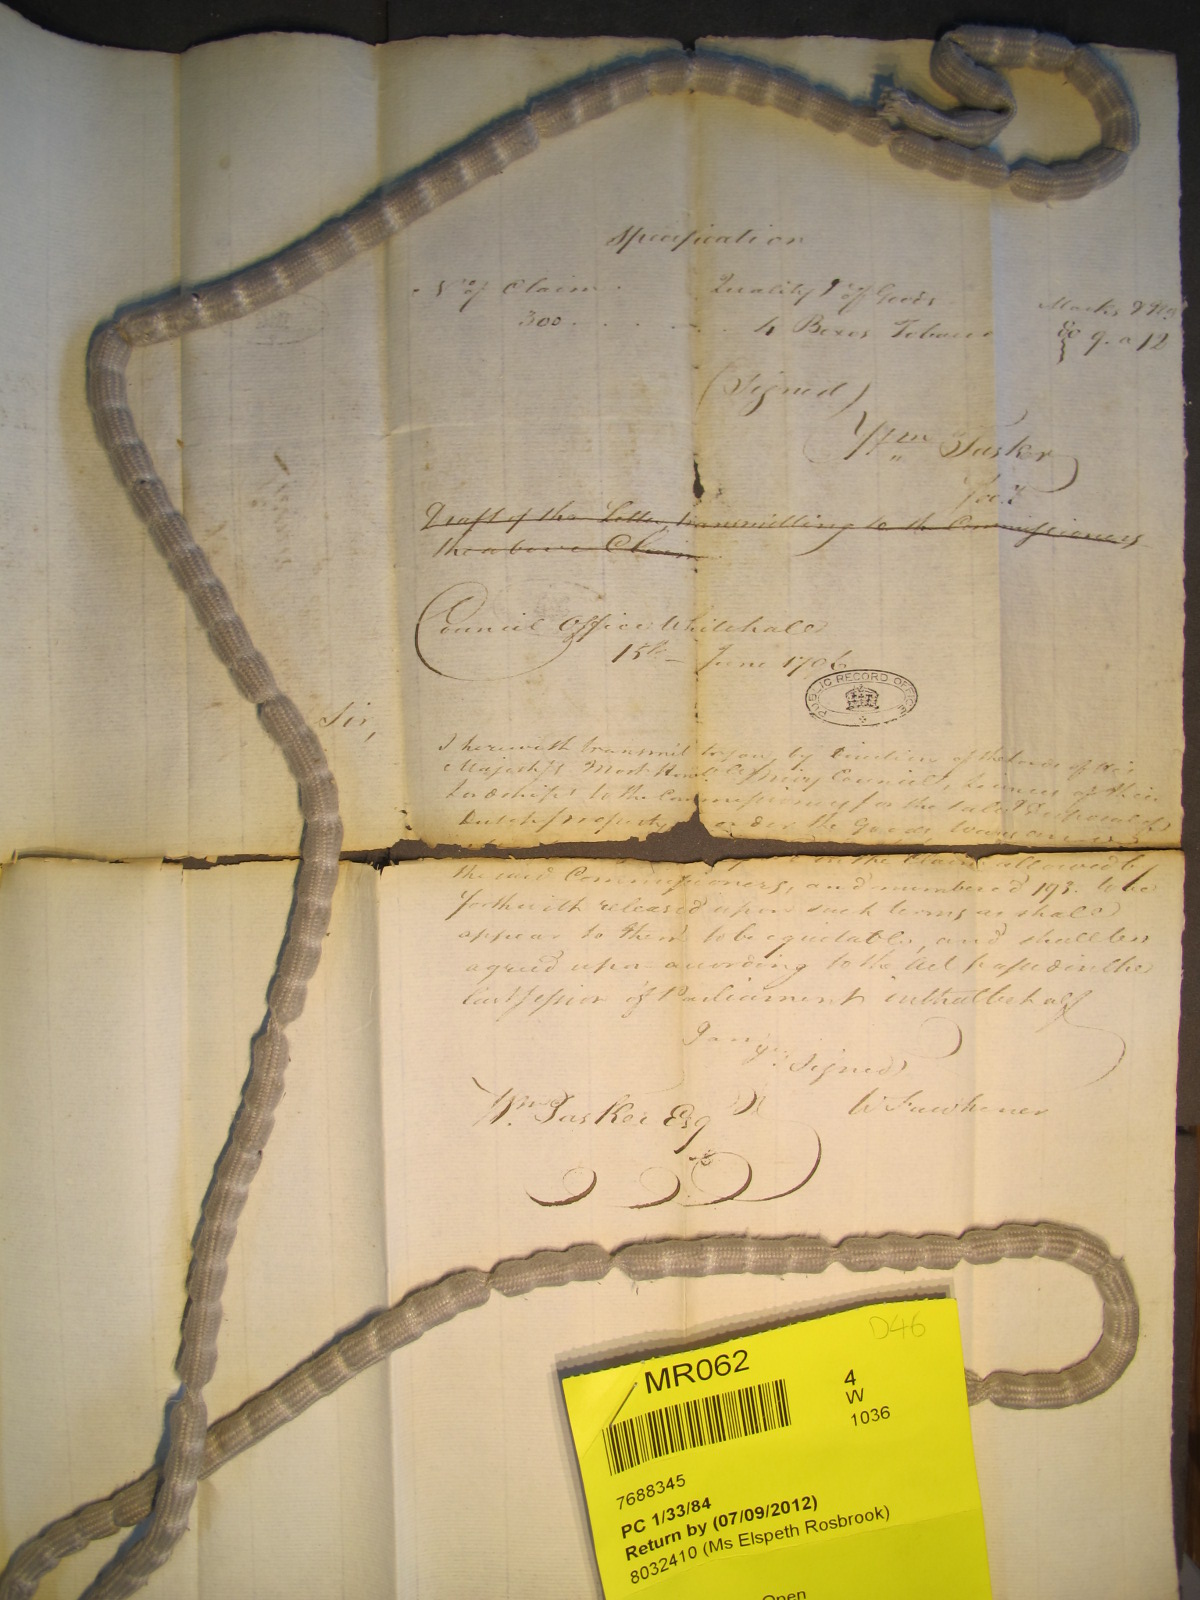 Specification
No. of Claim. Quality & Qy of Goods Marks & Nos.
300 4 Boxes Tobacco EC 9. a 12
(Signed)
Wm Tasker
Draft of the Letter, transmitting to the Commissioners
the above Claim
Council Office Whitehall
15th June 1796
PUBLIC RECORD OFFICE
Sir,
I herewith transmit to you, by Direction of the Lords of His
Majesty's Most Honble Privy Council, of their
Lordships to the Commissioners for the Sale & Disposal of
Dutch property the Goods
in the Claim allowed by
the said Commissioners, and numbered 193. to be
forthwith released upon such terms as shall
appear to them to be equitable, and shall be
agreed upon according to the Act passed in the
last Session of Parliament in that behalf
I am &c.
Signed
Wm. Tasker Esqr W Fawkener
D46
MR062
4
W
1036
7688345
PC 1/33/84
Return by (07/09/2012)
8032410 (Ms Elspeth Rosbrook)
Open